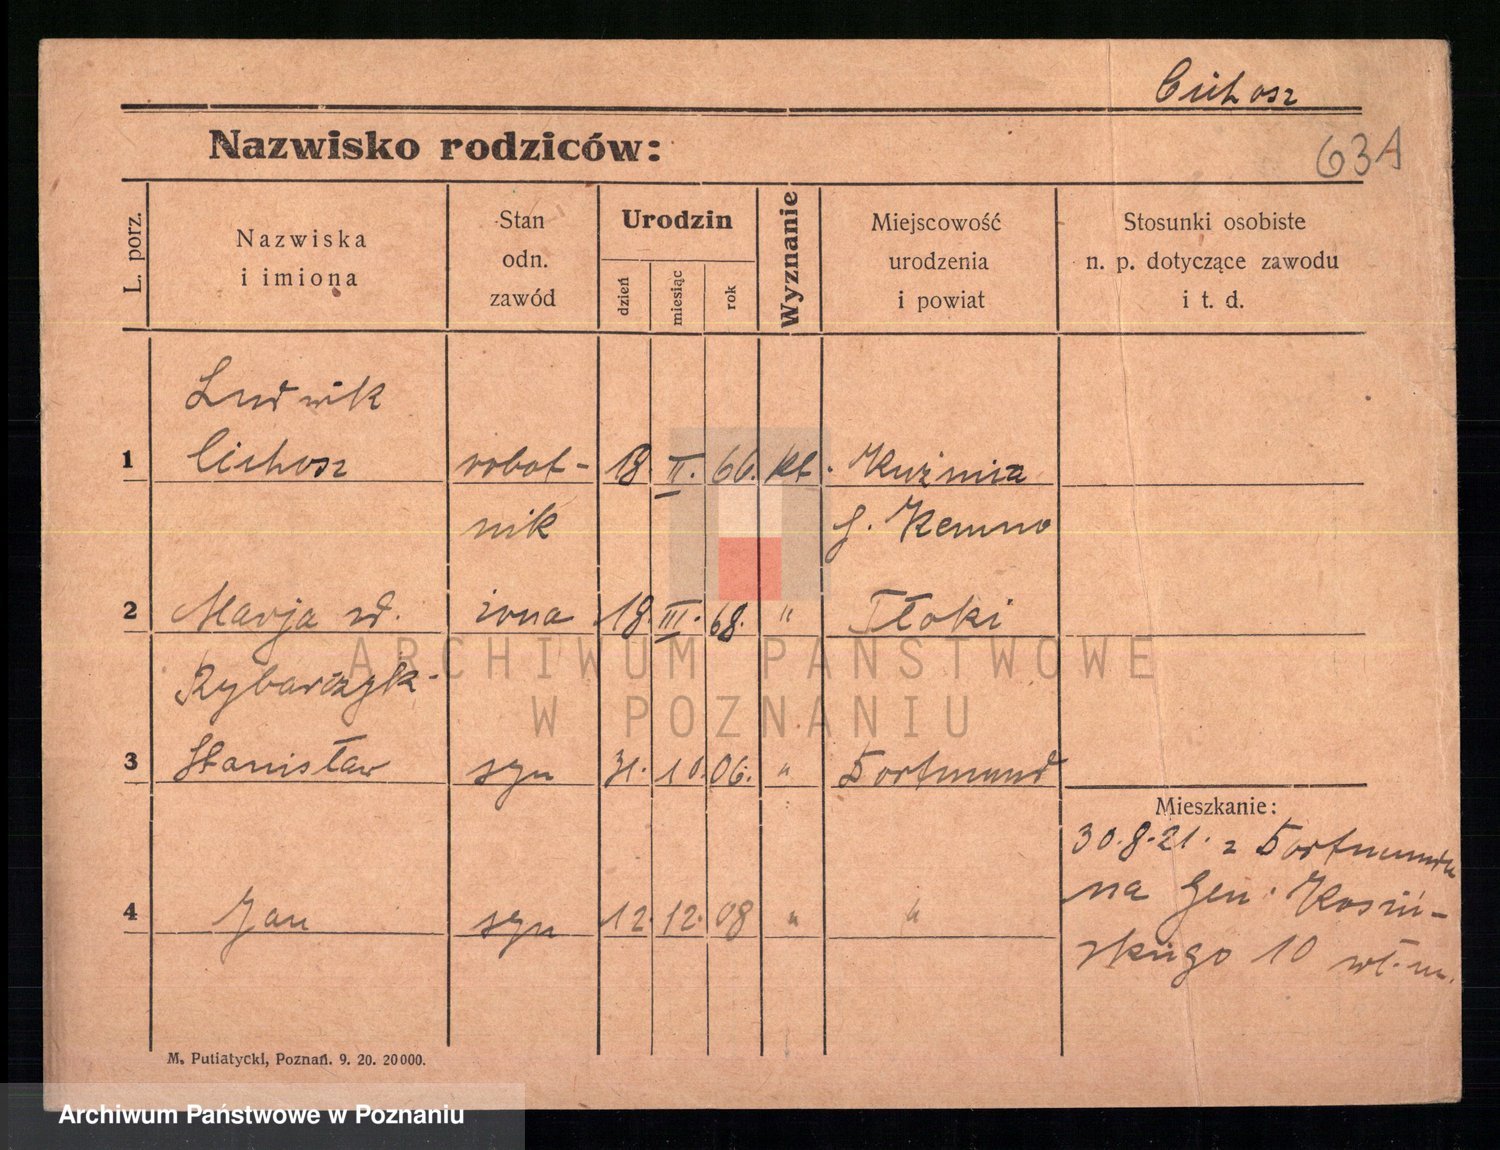 Cichosz
63A
Nazwisko rodziców:
L. porz.
Nazwiska
i imiona
Stan
odn.
zawód
Urodzin
dzień
miesiąc
rok
Wyznanie
Miejscowość
urodzenia
i powiat
Stosunki osobiste
n. p. dotyczące zawodu
i t. d.
Ludwik
1 Cichosz robot- 18. II. 66. kt. Kuźnica
nik
2 Marja zd. żona 18. III. 68. " Tłoki
Rybarczyk
3 Stanisław syn 31. 10. 06. " Dortmund
Mieszkanie:
30.8.21. z Dortmundu
na Gen. Kosiń-
skiego 10 wł. m.
4 Jan syn 12. 12. 08 " "
M. Putiatycki, Poznań. 9. 20. 20000.
ARCHIWUM PAŃSTWOWE
W POZNANIU
Archiwum Państwowe w Poznaniu